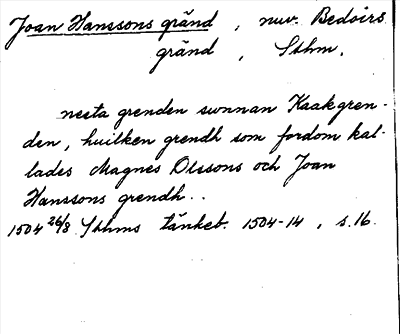 Joan Hanssons gränd, nuv. Bedoirs
gränd, Sthm.
nesta grenden sunnan Kaakgren-
den, huilken grendh som fordom kal-
lades Magnes Olssons och Joan
Hanssons grendh..
1504 26/8 Sthms tänkeb. 1504-14, s. 16.